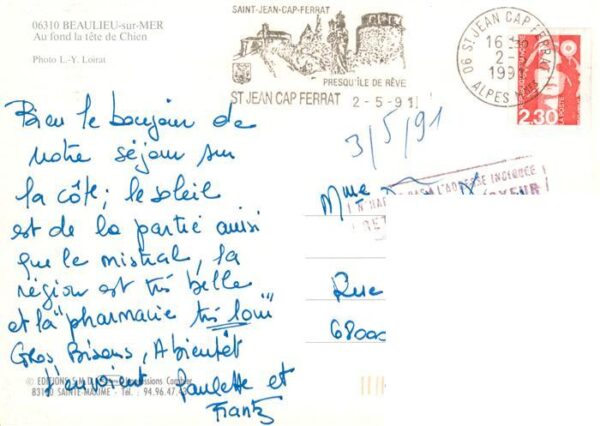 06310 BEAULIEU-sur-MER
Au fond la tête de Chien
Photo L.-Y. Loirat
SAINT-JEAN-CAP-FERRAT
PRESQU'ILE DE RÊVE
ST JEAN CAP FERRAT 2-5-91
06 ST JEAN CAP FERRAT
16
2-
199
ALPES
2.30
3/5/91
Bien le bonjour de
notre séjour sur
la côte; le soleil
est de la partie aussi
que le mistral, la
région est très belle
et la "pharmacie très loin"
Gros Bisous, A bientôt
Paulette et
Frantz
Mme
L'ADRESSE INDIQUEE
Rue
68000
© EDITIONS S.M.D.
83120 SAINTE-MAXIME - Tél. : 94.96.47.4